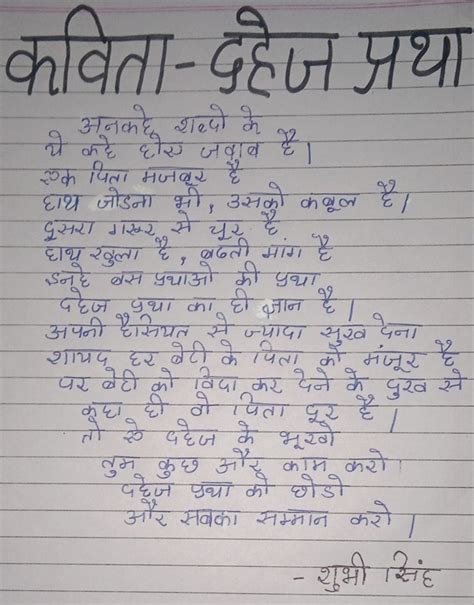 कविता - दहेज प्रथा
अनकहे शब्दो के
ये कहे होए जवाब है।
एक पिता मजबूर है
हाथ जोडना भी, उसको कबूल है।
दूसरा गरूर से चूर है
हाथ खुला है, बढती मांग है
इनहे बस प्रथाओ की प्रथा
दहेज प्रथा का ही ज्ञान है।
अपनी हैसियत से ज्यादा सुख देना
शायद हर बेटी के पिता को मंजूर है
पर बेटी को विदा कर देने के दुख से
कहा ही वो पिता दूर है।
तो ऐ दहेज के भूखो
तुम कुछ और काम करो।
दहेज प्रथा को छोडो
और सबका सम्मान करो।
- शुभी सिंह